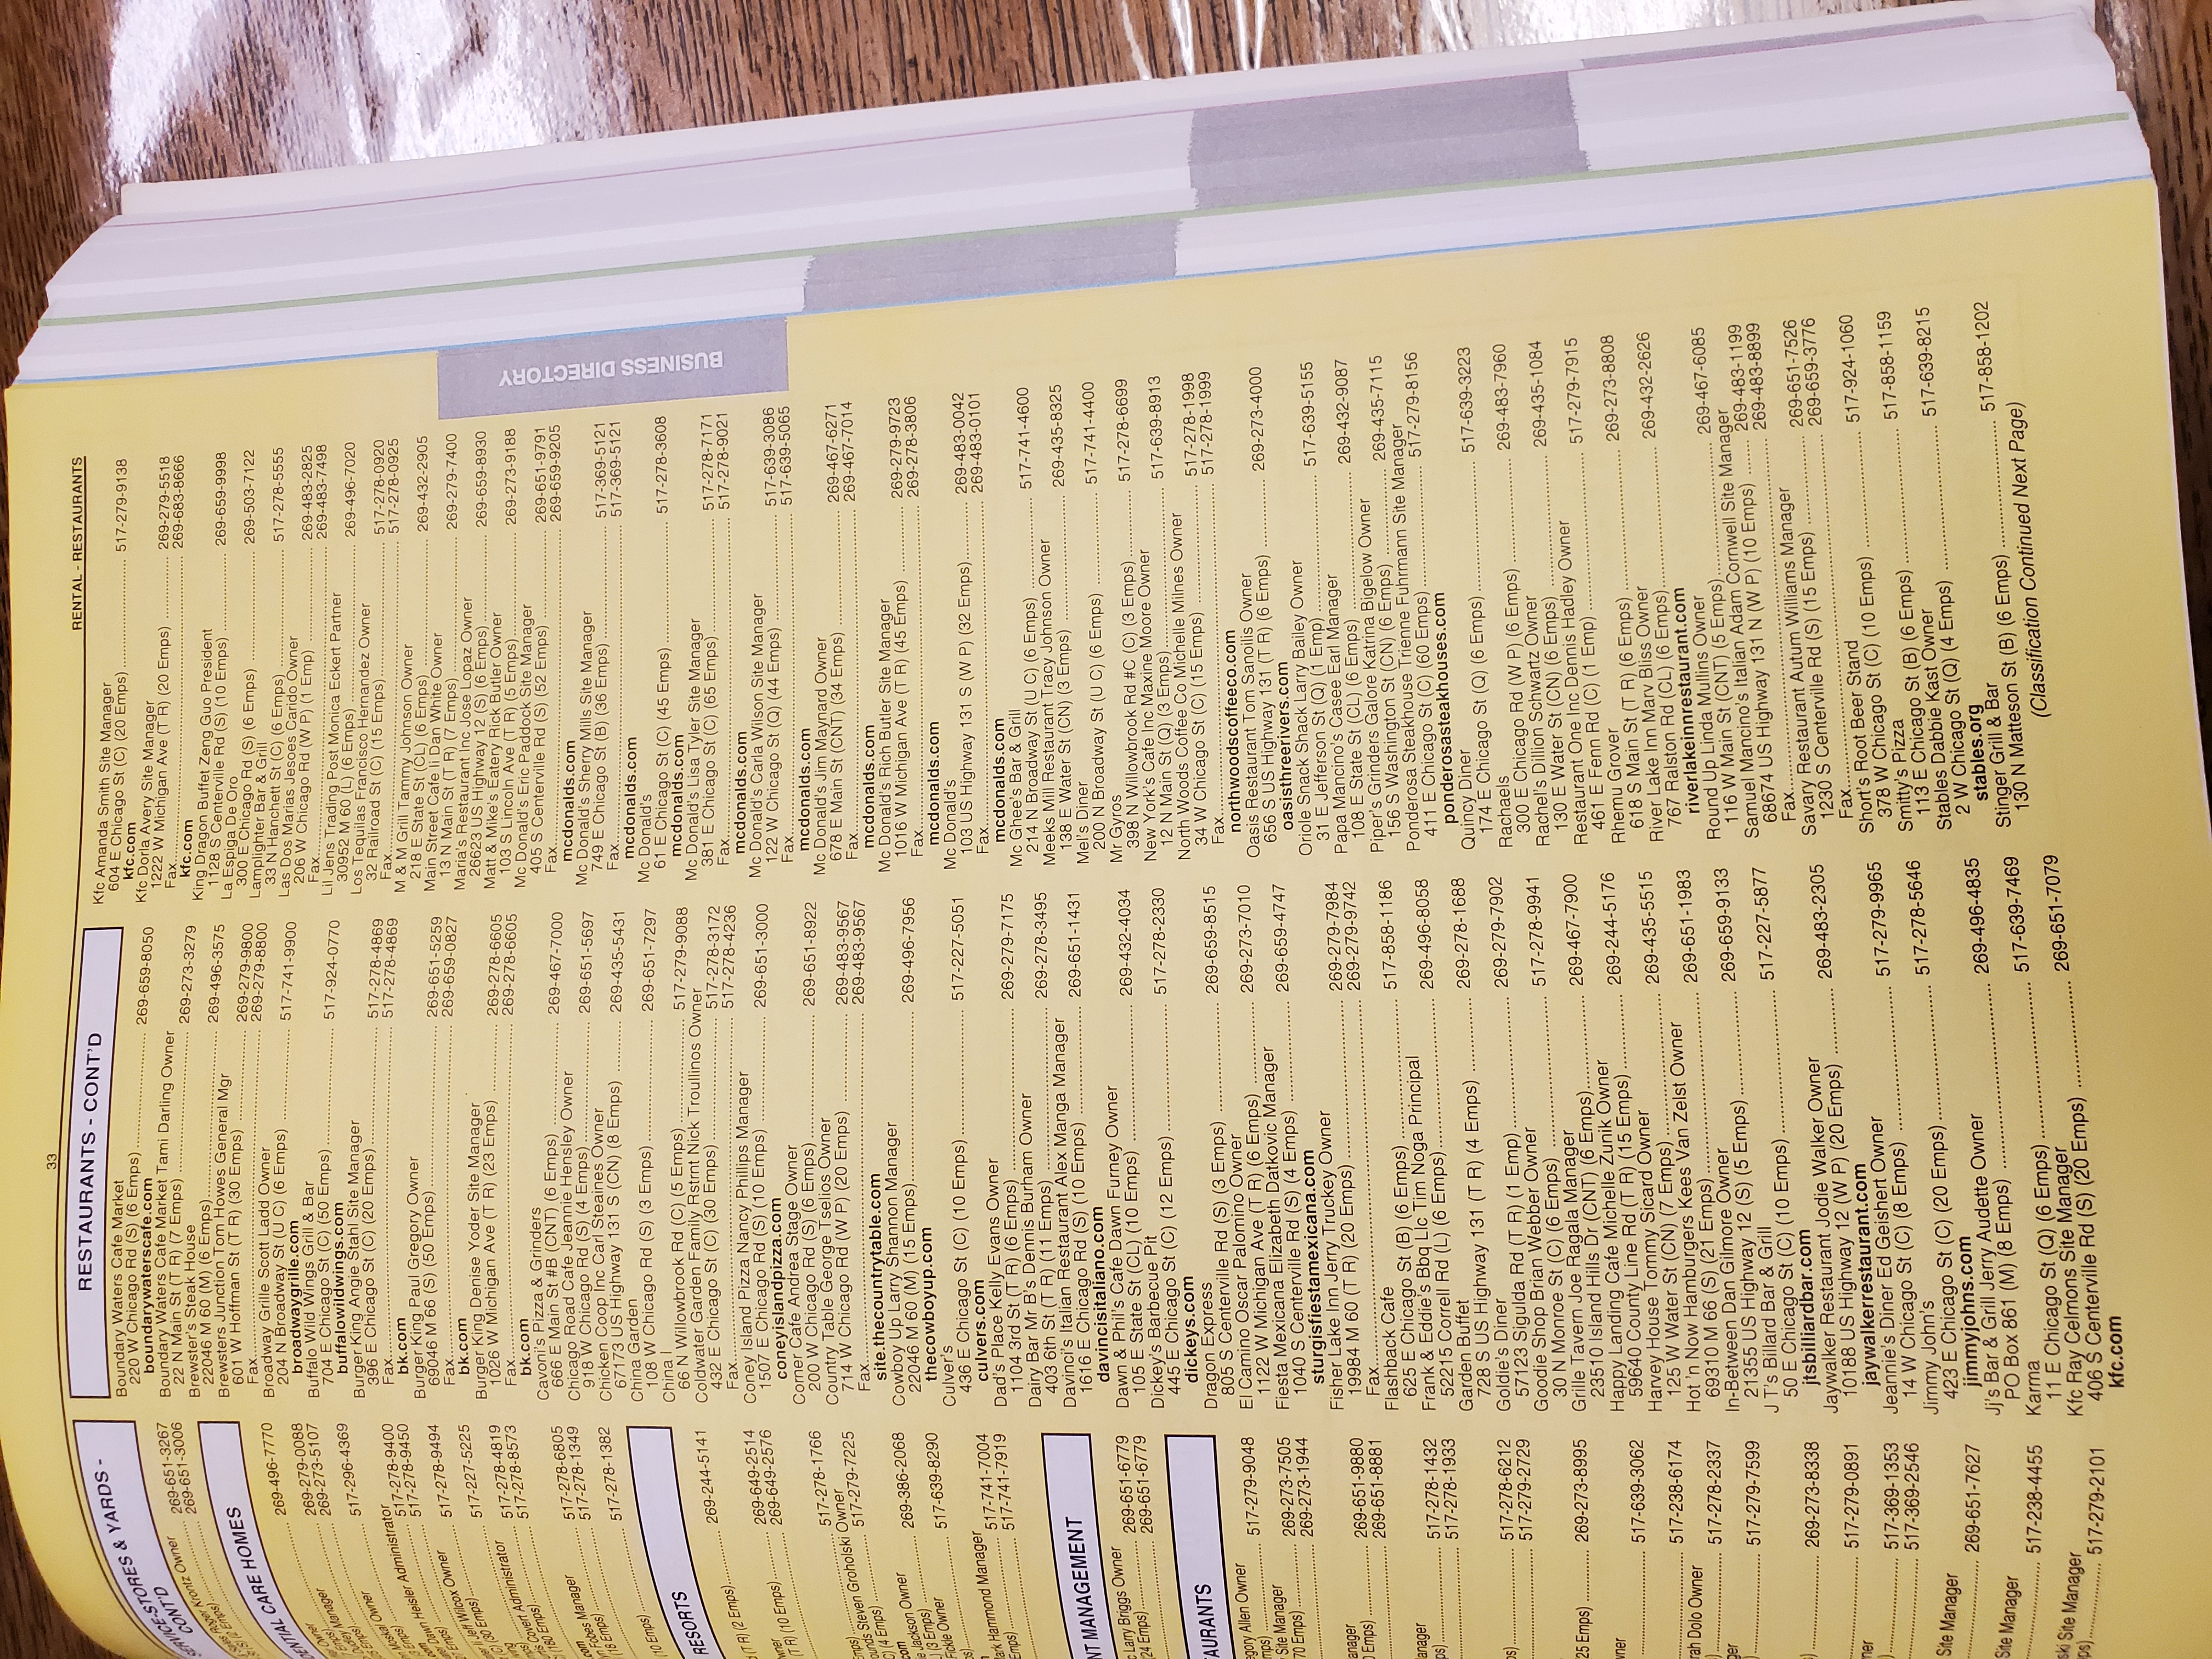 33
RENTAL - RESTAURANTS
STORES & YARDS -
CONT'D
Krontz Owner
269-651-3267
269-651-3006
CARE HOMES
269-496-7770
269-279-0088
269-273-5107
517-296-4369
517-278-9400
517-278-9450
517-278-9494
517-227-5225
517-278-4819
517-278-8573
517-278-6805
517-278-1349
517-278-1382
RESORTS
269-244-5141
(2 Emps)
269-649-2514
(T R) (10 Emps) 269-649-2576
517-278-1766
Steven Groholski Owner
517-279-7225
Jackson Owner
(4 Emps) 269-386-2068
(3 Emps) 517-639-8290
Hammond Manager
517-741-7004
517-741-7919
MANAGEMENT
Larry Briggs Owner
(24 Emps) 269-651-6779
269-651-6779
Allen Owner
517-279-9048
Site Manager
269-273-7505
269-273-1944
269-651-9880
269-651-8881
517-278-1432
517-278-1933
517-278-6212
517-279-2729
269-273-8995
517-639-3062
517-238-6174
Dolo Owner
517-278-2337
517-279-7599
269-273-8338
517-279-0891
517-369-1353
517-369-2546
Site Manager
269-651-7627
Site Manager
517-238-4455
Site Manager
517-279-2101
RESTAURANTS - CONT'D
Boundary Waters Cafe Market
220 W Chicago Rd (S) (6 Emps) 269-659-8050
boundarywaterscafe.com
Boundary Waters Cafe Market Tami Darling Owner
22 N Main St (T R) (7 Emps) 269-273-3279
Brewster's Steak House
22046 M 60 (M) (6 Emps) 269-496-3575
Brewsters Junction Tom Howes General Mgr
601 W Hoffman St (T R) (30 Emps) 269-279-9800
Fax 269-279-8800
Broadway Grille Scott Ladd Owner
204 N Broadway St (U C) (6 Emps) 517-741-9900
broadwaygrille.com
Buffalo Wild Wings Grill & Bar
704 E Chicago St (C) (50 Emps) 517-924-0770
buffalowildwings.com
Burger King Angie Stahl Site Manager
396 E Chicago St (C) (20 Emps) 517-278-4869
Fax 517-278-4869
bk.com
Burger King Paul Gregory Owner
69046 M 66 (S) (50 Emps) 269-651-5259
Fax 269-659-0827
bk.com
Burger King Denise Yoder Site Manager
1026 W Michigan Ave (T R) (23 Emps) 269-278-6605
Fax 269-278-6605
bk.com
Cavoni's Pizza & Grinders
666 E Main St #B (CNT) (6 Emps) 269-467-7000
Chicago Road Cafe Jeannie Hensley Owner
918 W Chicago Rd (S) (4 Emps) 269-651-5697
Chicken Coop Inc Carl Steaines Owner
67173 US Highway 131 S (CN) (8 Emps) 269-435-5431
China Garden
108 W Chicago Rd (S) (3 Emps) 269-651-7297
China I
66 N Willowbrook Rd (C) (5 Emps) 517-279-9088
Coldwater Garden Family Rstrnt Nick Troullinos Owner
432 E Chicago St (C) (30 Emps) 517-278-3172
Fax 517-278-4236
Coney Island Pizza Nancy Philips Manager
1507 E Chicago Rd (S) (10 Emps) 269-651-3000
coneyislandpizza.com
Corner Cafe Andrea Stage Owner
200 W Chicago Rd (S) (6 Emps) 269-651-8922
Country Table George Tselios Owner
714 W Chicago Rd (W P) (20 Emps) 269-483-9567
Fax 269-483-9567
site.thecountrytable.com
Cowboy Up Larry Shannon Manager
22046 M 60 (M) (15 Emps) 269-496-7956
thecowboyup.com
Culver's
436 E Chicago St (C) (10 Emps) 517-227-5051
culvers.com
Dad's Place Kelly Evans Owner
1104 3rd St (T R) (6 Emps) 269-279-7175
Dairy Bar Mr B's Dennis Burham Owner
403 6th St (T R) (11 Emps) 269-278-3495
Davinci's Italian Restaurant Alex Manga Manager
1616 E Chicago Rd (S) (10 Emps) 269-651-1431
davincisitaliano.com
Dawn & Phil's Cafe Dawn Furney Owner
105 E State St (CL) (10 Emps) 269-432-4034
Dickey's Barbecue Pit
445 E Chicago St (C) (12 Emps) 517-278-2330
dickeys.com
Dragon Express
805 S Centerville Rd (S) (3 Emps) 269-659-8515
El Camino Oscar Palomino Owner
1122 W Michigan Ave (T R) (6 Emps) 269-273-7010
Fiesta Mexicana Elizabeth Datkovic Manager
1040 S Centerville Rd (S) (4 Emps) 269-659-4747
sturgisfiestamexicana.com
Fisher Lake Inn Jerry Truckey Owner
19984 M 60 (T R) (20 Emps) 269-279-7984
Fax 269-279-9742
Flashback Cafe
625 E Chicago St (B) (6 Emps) 517-858-1186
Frank & Eddie's Bbq Llc Tim Noga Principal
52215 Correll Rd (L) (6 Emps) 269-496-8058
Garden Buffet
728 S US Highway 131 (T R) (4 Emps) 269-278-1688
Goldie's Diner
57123 Sigulda Rd (T R) (1 Emp) 269-279-7902
Goodie Shop Brian Webber Owner
30 N Monroe St (C) (6 Emps) 517-278-9941
Grille Tavern Joe Ragala Manager
23510 Island Hills Dr (CNT) (6 Emps) 269-467-7900
Happy Landing Cafe Michelle Zunik Owner
59640 County Line Rd (T R) (15 Emps) 269-244-5176
Harvey House Tommy Sicard Owner
125 W Water St (CN) (7 Emps) 269-435-5515
Hot 'n Now Hamburgers Kees Van Zelst Owner
69310 M 66 (S) (21 Emps) 269-651-1983
In-Between Dan Gilmore Owner
21355 US Highway 12 (S) (5 Emps) 269-659-9133
J T's Billard Bar & Grill
50 E Chicago St (C) (10 Emps) 517-227-5877
jtsbilliardbar.com
Jaywalker Restaurant Jodie Walker Owner
10188 US Highway 12 (W P) (20 Emps) 269-483-2305
jaywalkerrestaurant.com
Jeannie's Diner Ed Geishert Owner
14 W Chicago St (C) (8 Emps) 517-279-9965
Jimmy John's
423 E Chicago St (C) (20 Emps) 517-278-5646
jimmyjohns.com
Jj's Bar & Grill Jerry Audette Owner
PO Box 861 (M) (8 Emps) 269-496-4835
Karma
11 E Chicago St (Q) (6 Emps) 517-639-7469
Kfc Ray Celmons Site Manager
406 S Centerville Rd (S) (20 Emps) 269-651-7079
kfc.com
Kfc Amanda Smith Site Manager
604 E Chicago St (C) (20 Emps) 517-279-9138
kfc.com
Kfc Dorla Avery Site Manager
1222 W Michigan Ave (T R) (20 Emps) 269-279-5518
Fax 269-683-8666
kfc.com
King Dragon Buffet Zeng Guo President
1128 S Centerville Rd (S) (10 Emps) 269-659-9998
La Espiga De Oro
300 E Chicago Rd (S) (6 Emps) 269-503-7122
Lamplighter Bar & Grill
33 N Hanchett St (C) (6 Emps) 517-278-5555
Las Dos Marias Jesoes Carido Owner
206 W Chicago Rd (W P) (1 Emp) 269-483-2825
Fax 269-483-7498
Lil Jens Trading Post Monica Eckert Partner
30952 M 60 (L) (6 Emps) 269-496-7020
Los Tequilas Francisco Hernandez Owner
32 Railroad St (C) (15 Emps) 517-278-0920
Fax 517-278-0925
M & M Grill Tammy Johnson Owner
218 E State St (CL) (6 Emps) 269-432-2905
Main Street Cafe Ii Dan White Owner
13 N Main St (T R) (7 Emps) 269-279-7400
Maria's Restaurant Inc Jose Lopaz Owner
26623 US Highway 12 (S) (6 Emps) 269-659-6930
Matt & Mike's Eatery Rick Butler Owner
103 S Lincoln Ave (T R) (5 Emps) 269-273-9188
Mc Donald's Eric Paddock Site Manager
405 S Centerville Rd (S) (52 Emps) 269-651-9791
Fax 269-659-9205
mcdonalds.com
Mc Donald's Sherry Mills Site Manager
749 E Chicago St (B) (36 Emps) 517-369-5121
Fax 517-369-5121
mcdonalds.com
Mc Donald's
61 E Chicago St (C) (45 Emps) 517-278-3608
mcdonalds.com
Mc Donald's Lisa Tyler Site Manager
361 E Chicago St (C) (65 Emps) 517-278-7171
Fax 517-278-9021
mcdonalds.com
Mc Donald's Carla Wilson Site Manager
122 W Chicago St (Q) (44 Emps) 517-639-3086
Fax 517-639-5065
mcdonalds.com
Mc Donald's Jim Maynard Owner
678 E Main St (CNT) (34 Emps) 269-467-6271
Fax 269-467-7014
mcdonalds.com
Mc Donald's Rich Butler Site Manager
1016 W Michigan Ave (T R) (45 Emps) 269-279-9723
Fax 269-278-3806
mcdonalds.com
Mc Donald's
103 US Highway 131 S (W P) (32 Emps) 269-483-0042
Fax 269-483-0101
mcdonalds.com
Mc Ghee's Bar & Grill
214 N Broadway St (U C) (6 Emps) 517-741-4600
Meeks Mill Restaurant Tracy Johnson Owner
138 E Water St (CN) (3 Emps) 269-435-8325
Mel's Diner
200 N Broadway St (U C) (6 Emps) 517-741-4400
Mr Gyros
398 N Willowbrook Rd #C (C) (3 Emps) 517-278-6699
New York's Cafe Inc Maxine Moore Owner
12 N Main St (Q) (3 Emps) 517-639-8913
North Woods Coffee Co Michelle Milnes Owner
34 W Chicago St (C) (15 Emps) 517-278-1998
Fax 517-278-1999
northwoodscoffeeco.com
Oasis Restaurant Tom Sanoilis Owner
656 S US Highway 131 (T R) (6 Emps) 269-273-4000
oasisthreerivers.com
Oriole Snack Shack Larry Bailey Owner
31 E Jefferson St (Q) (1 Emp) 517-639-5155
Papa Mancino's Casee Earl Manager
108 E State St (CL) (6 Emps) 269-432-9087
Piper's Grinders Galore Katrina Bigelow Owner
156 S Washington St (CN) (6 Emps) 269-435-7115
Ponderosa Steakhouse Trienne Fuhrmann Site Manager
411 E Chicago St (C) (60 Emps) 517-279-8156
ponderosasteakhouses.com
Quincy Diner
174 E Chicago St (Q) (6 Emps) 517-639-3223
Rachaels
300 E Chicago Rd (W P) (6 Emps) 269-483-7960
Rachel's Dillion Schwartz Owner
130 E Water St (CN) (6 Emps) 269-435-1084
Restaurant One Inc Dennis Hadley Owner
461 E Fenn Rd (C) (1 Emp) 517-279-7915
Rhemu Grover
618 S Main St (T R) (6 Emps) 269-273-8808
River Lake Inn Marv Bliss Owner
767 Ralston Rd (CL) (6 Emps) 269-432-2626
riverlakeinnrestaurant.com
Round Up Linda Mullins Owner
116 W Main St (CNT) (5 Emps) 269-467-6085
Samuel Mancino's Italian Adam Cornwell Site Manager
68674 US Highway 131 N (W P) (10 Emps) 269-483-1199
Fax 269-483-8899
Savary Restaurant Autum Williams Manager
1230 S Centerville Rd (S) (15 Emps) 269-651-7526
Fax 269-659-3776
Short's Root Beer Stand
378 W Chicago St (C) (10 Emps) 517-924-1060
Smitty's Pizza
113 E Chicago St (B) (6 Emps) 517-858-1159
Stables Dabbie Kast Owner
2 W Chicago St (Q) (4 Emps) 517-639-8215
stables.org
Stinger Grill & Bar
130 N Matteson St (B) (6 Emps) 517-858-1202
(Classification Continued Next Page)
BUSINESS DIRECTORY